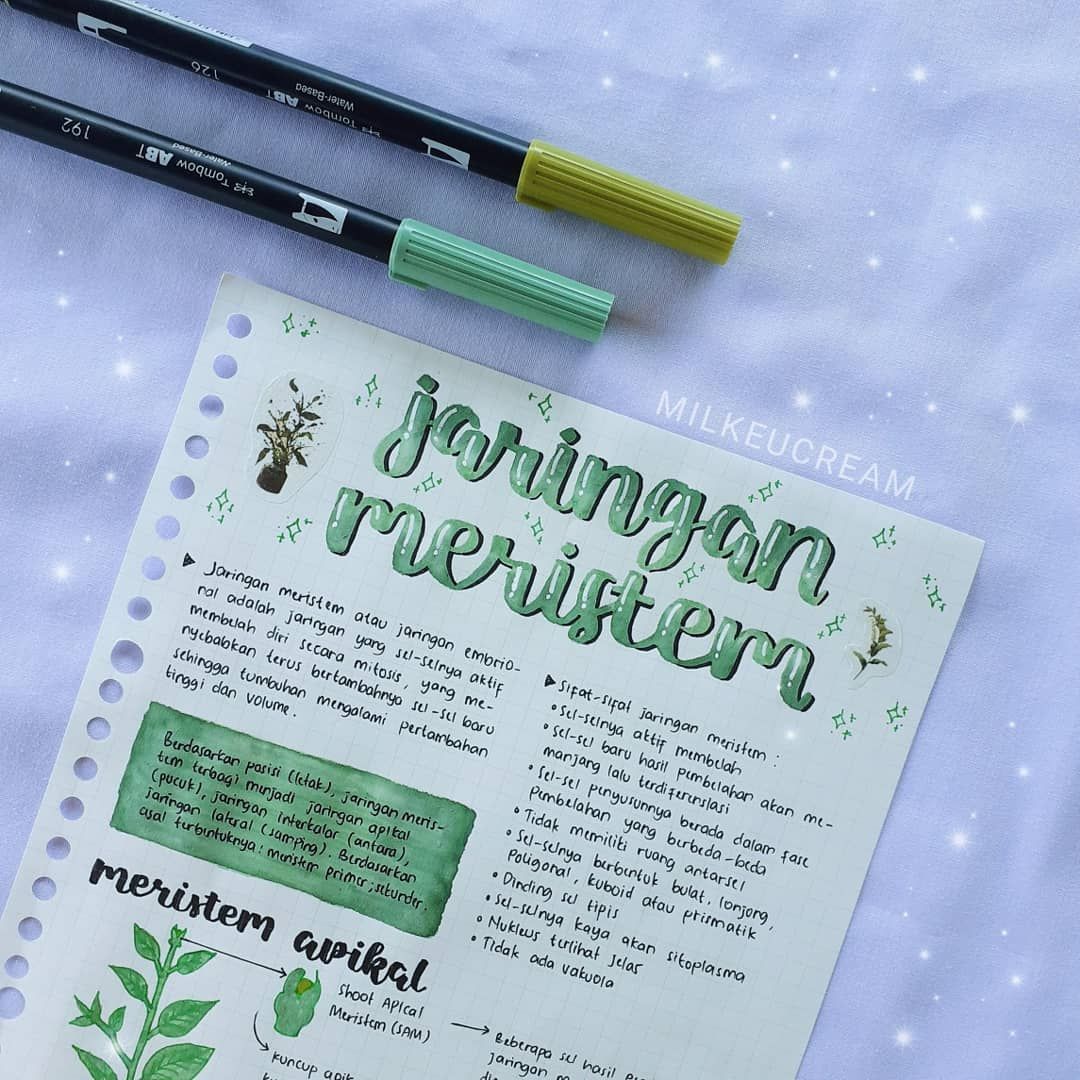 126
Tombow ABT
Water-Based
192
Tombow ABT
Water-Based
MILKEUCREAM
jaringan
meristem
Jaringan meristem atau jaringan embrio-
nal adalah jaringan yang sel-selnya aktif
membelah diri secara mitosis, yang me-
nyebabkan terus bertambahnya sel-sel baru
sehingga tumbuhan mengalami pertambahan
tinggi dan volume.
Berdasarkan posisi (letak), jaringan meris-
tem terbagi menjadi jaringan apikal
(pucuk), jaringan interkalar (antara),
jaringan lateral (samping). Berdasarkan
asal terbentuknya: meristem primer; sekunder.
Sifat-sifat jaringan meristem :
• Sel-selnya aktif membelah
• Sel-sel baru hasil pembelahan akan me-
manjang lalu terdiferensiasi
• Sel-sel penyusunnya berada dalam fase
pembelahan yang berbeda-beda
• Tidak memiliki ruang antarsel
• Sel-selnya berbentuk bulat, lonjong,
poligonal, kuboid atau prismatik
• Dinding sel tipis
• Sel-selnya kaya akan sitoplasma
• Nukleus terlihat jelas
• Tidak ada vakuola
meristem apikal
Shoot Apical
Meristem (SAM)
kuncup
Beberapa sel hasil
jaringan